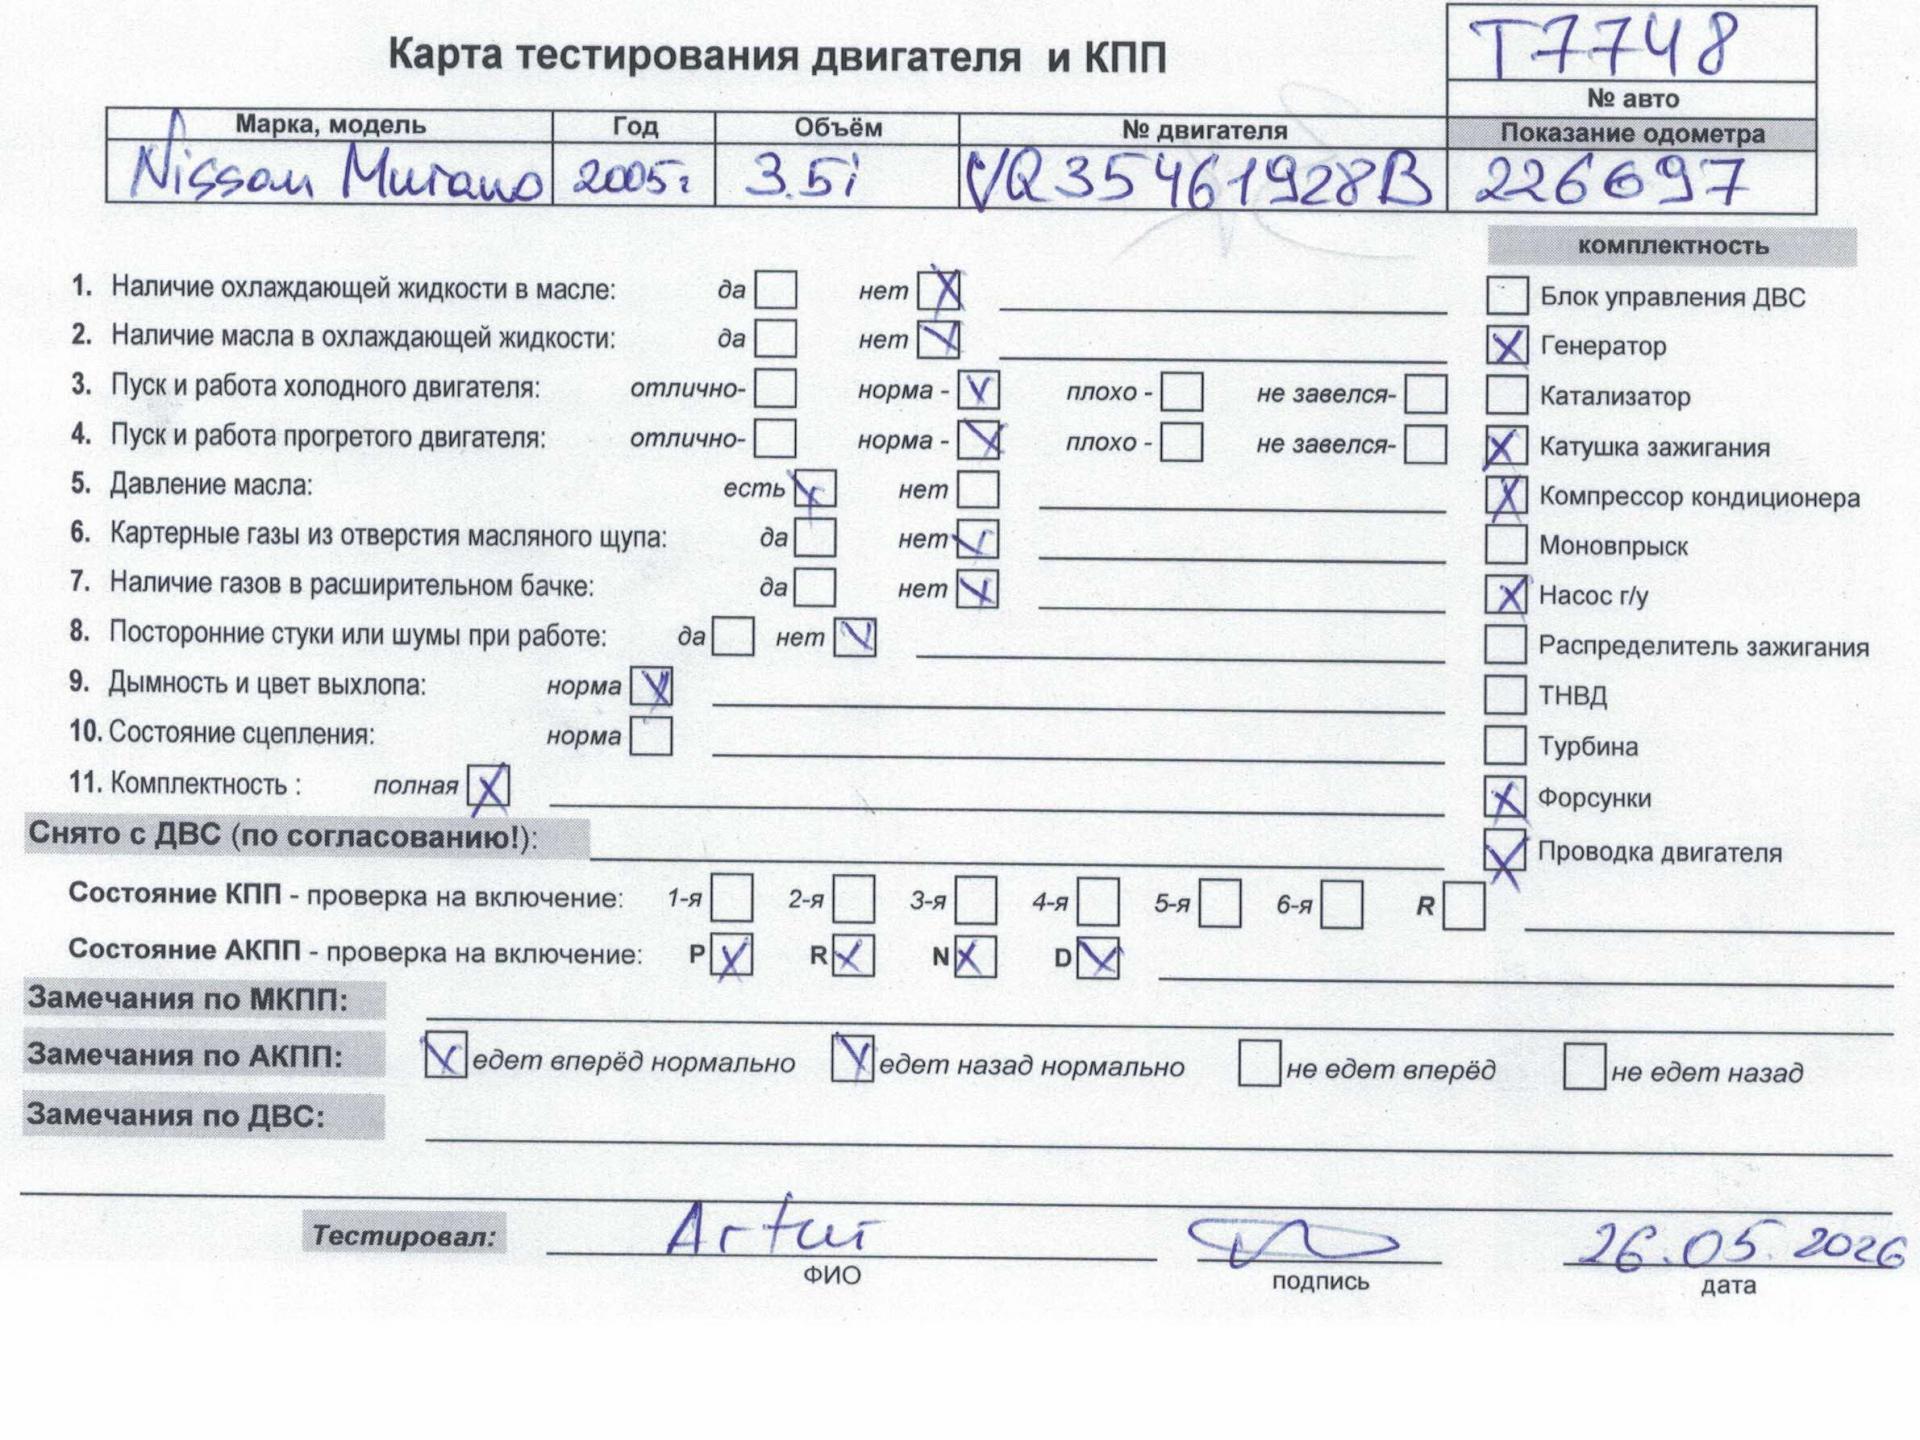 Карта тестирования двигателя и КПП
T7748
№ авто
Марка, модель Год Объём № двигателя Показание одометра
Nissan Murano 2005г 3.5i VQ35461928B 226697
комплектность
1. Наличие охлаждающей жидкости в масле: да нет
Блок управления ДВС
2. Наличие масла в охлаждающей жидкости: да нет
Генератор
3. Пуск и работа холодного двигателя: отлично- норма - плохо - не завелся-
Катализатор
4. Пуск и работа прогретого двигателя: отлично- норма - плохо - не завелся-
Катушка зажигания
5. Давление масла: есть нет
Компрессор кондиционера
6. Картерные газы из отверстия масляного щупа: да нет
Моновпрыск
7. Наличие газов в расширительном бачке: да нет
Насос г/у
8. Посторонние стуки или шумы при работе: да нет
Распределитель зажигания
9. Дымность и цвет выхлопа: норма
ТНВД
10. Состояние сцепления: норма
Турбина
11. Комплектность : полная
Форсунки
Снято с ДВС (по согласованию!):
Проводка двигателя
Состояние КПП - проверка на включение: 1-я 2-я 3-я 4-я 5-я 6-я R
Состояние АКПП - проверка на включение: P R N D
Замечания по МКПП:
Замечания по АКПП: едет вперёд нормально едет назад нормально не едет вперёд не едет назад
Замечания по ДВС:
Тестировал: Artur 26.05.2026
ФИО подпись дата